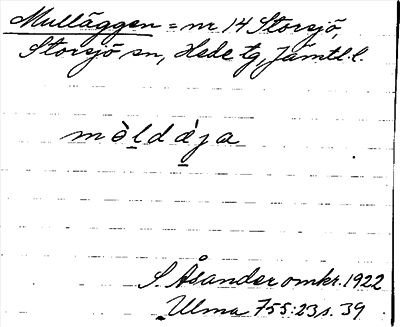 Mulläggen = nr 14 Storsjö,
Storsjö sn, Hede tg, Jämtl. l.
mòḻdạ̀ja
S. Åsander omkr. 1922
Ulma 755:23 s. 39